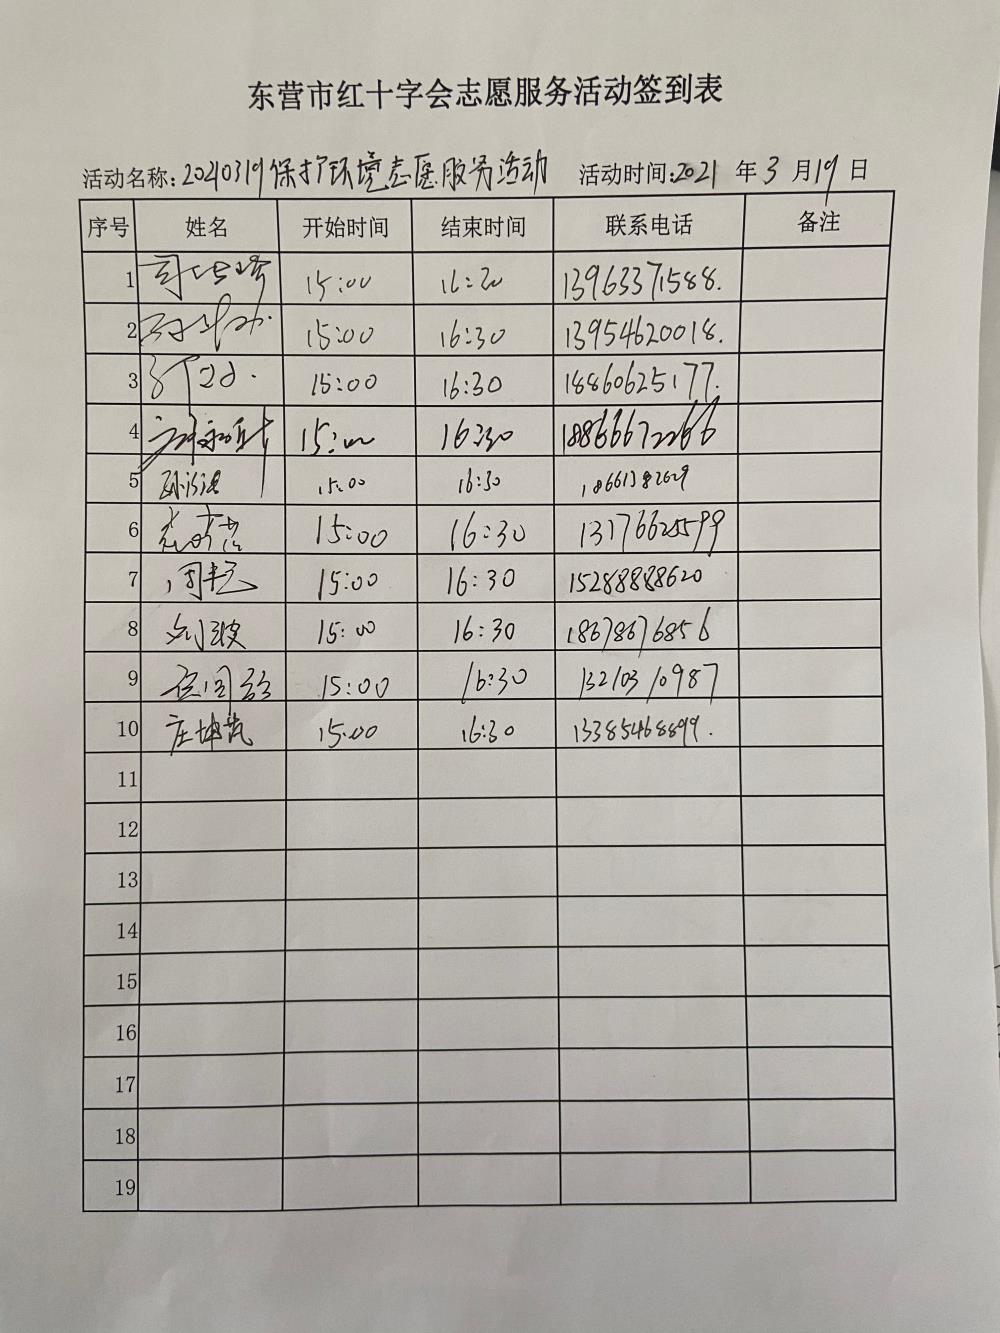 东营市红十字会志愿服务活动签到表
活动名称:20210319保护环境志愿服务活动 活动时间:2021 年 3 月 19 日
序号 姓名 开始时间 结束时间 联系电话 备注
1 15:00 16:30 13963371588.
2 15:00 16:30 13954620018.
3 15:00 16:30 18860625177.
4 15:00 16:30 18866672266
5 15:00 16:30 18661382629
6 15:00 16:30 13176625599
7 周丰 15:00 16:30 15288888620
8 刘波 15:00 16:30 18678676856
9 15:00 16:30 13210310987
10 庄坤凯 15:00 16:30 13385468899.
11
12
13
14
15
16
17
18
19